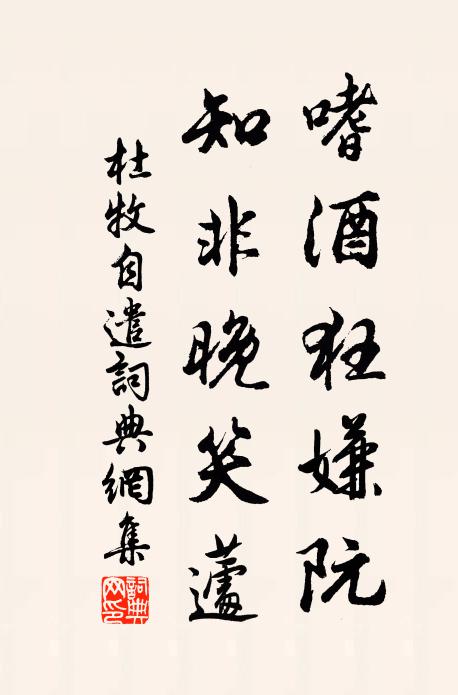 嗜酒狂嫌阮
知非晚笑蘧
杜牧自遣詞典網集
詞典
网印